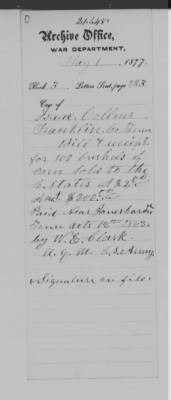 D
Archive Office,
WAR DEPARTMENT,
May 1, 1877.
Book 3 Letters Sent, page 283
Copy of
Isaac Collins
Franklin Co Tenn
Bill & receipt
for 100 bushels of
corn sold to the
C. States at $2 00
Amt. $200 00
Paid near
Tenn Oct 12th 1863.
by W. E. Clark
A. Q. M. C. S. Army.
Signature on file.